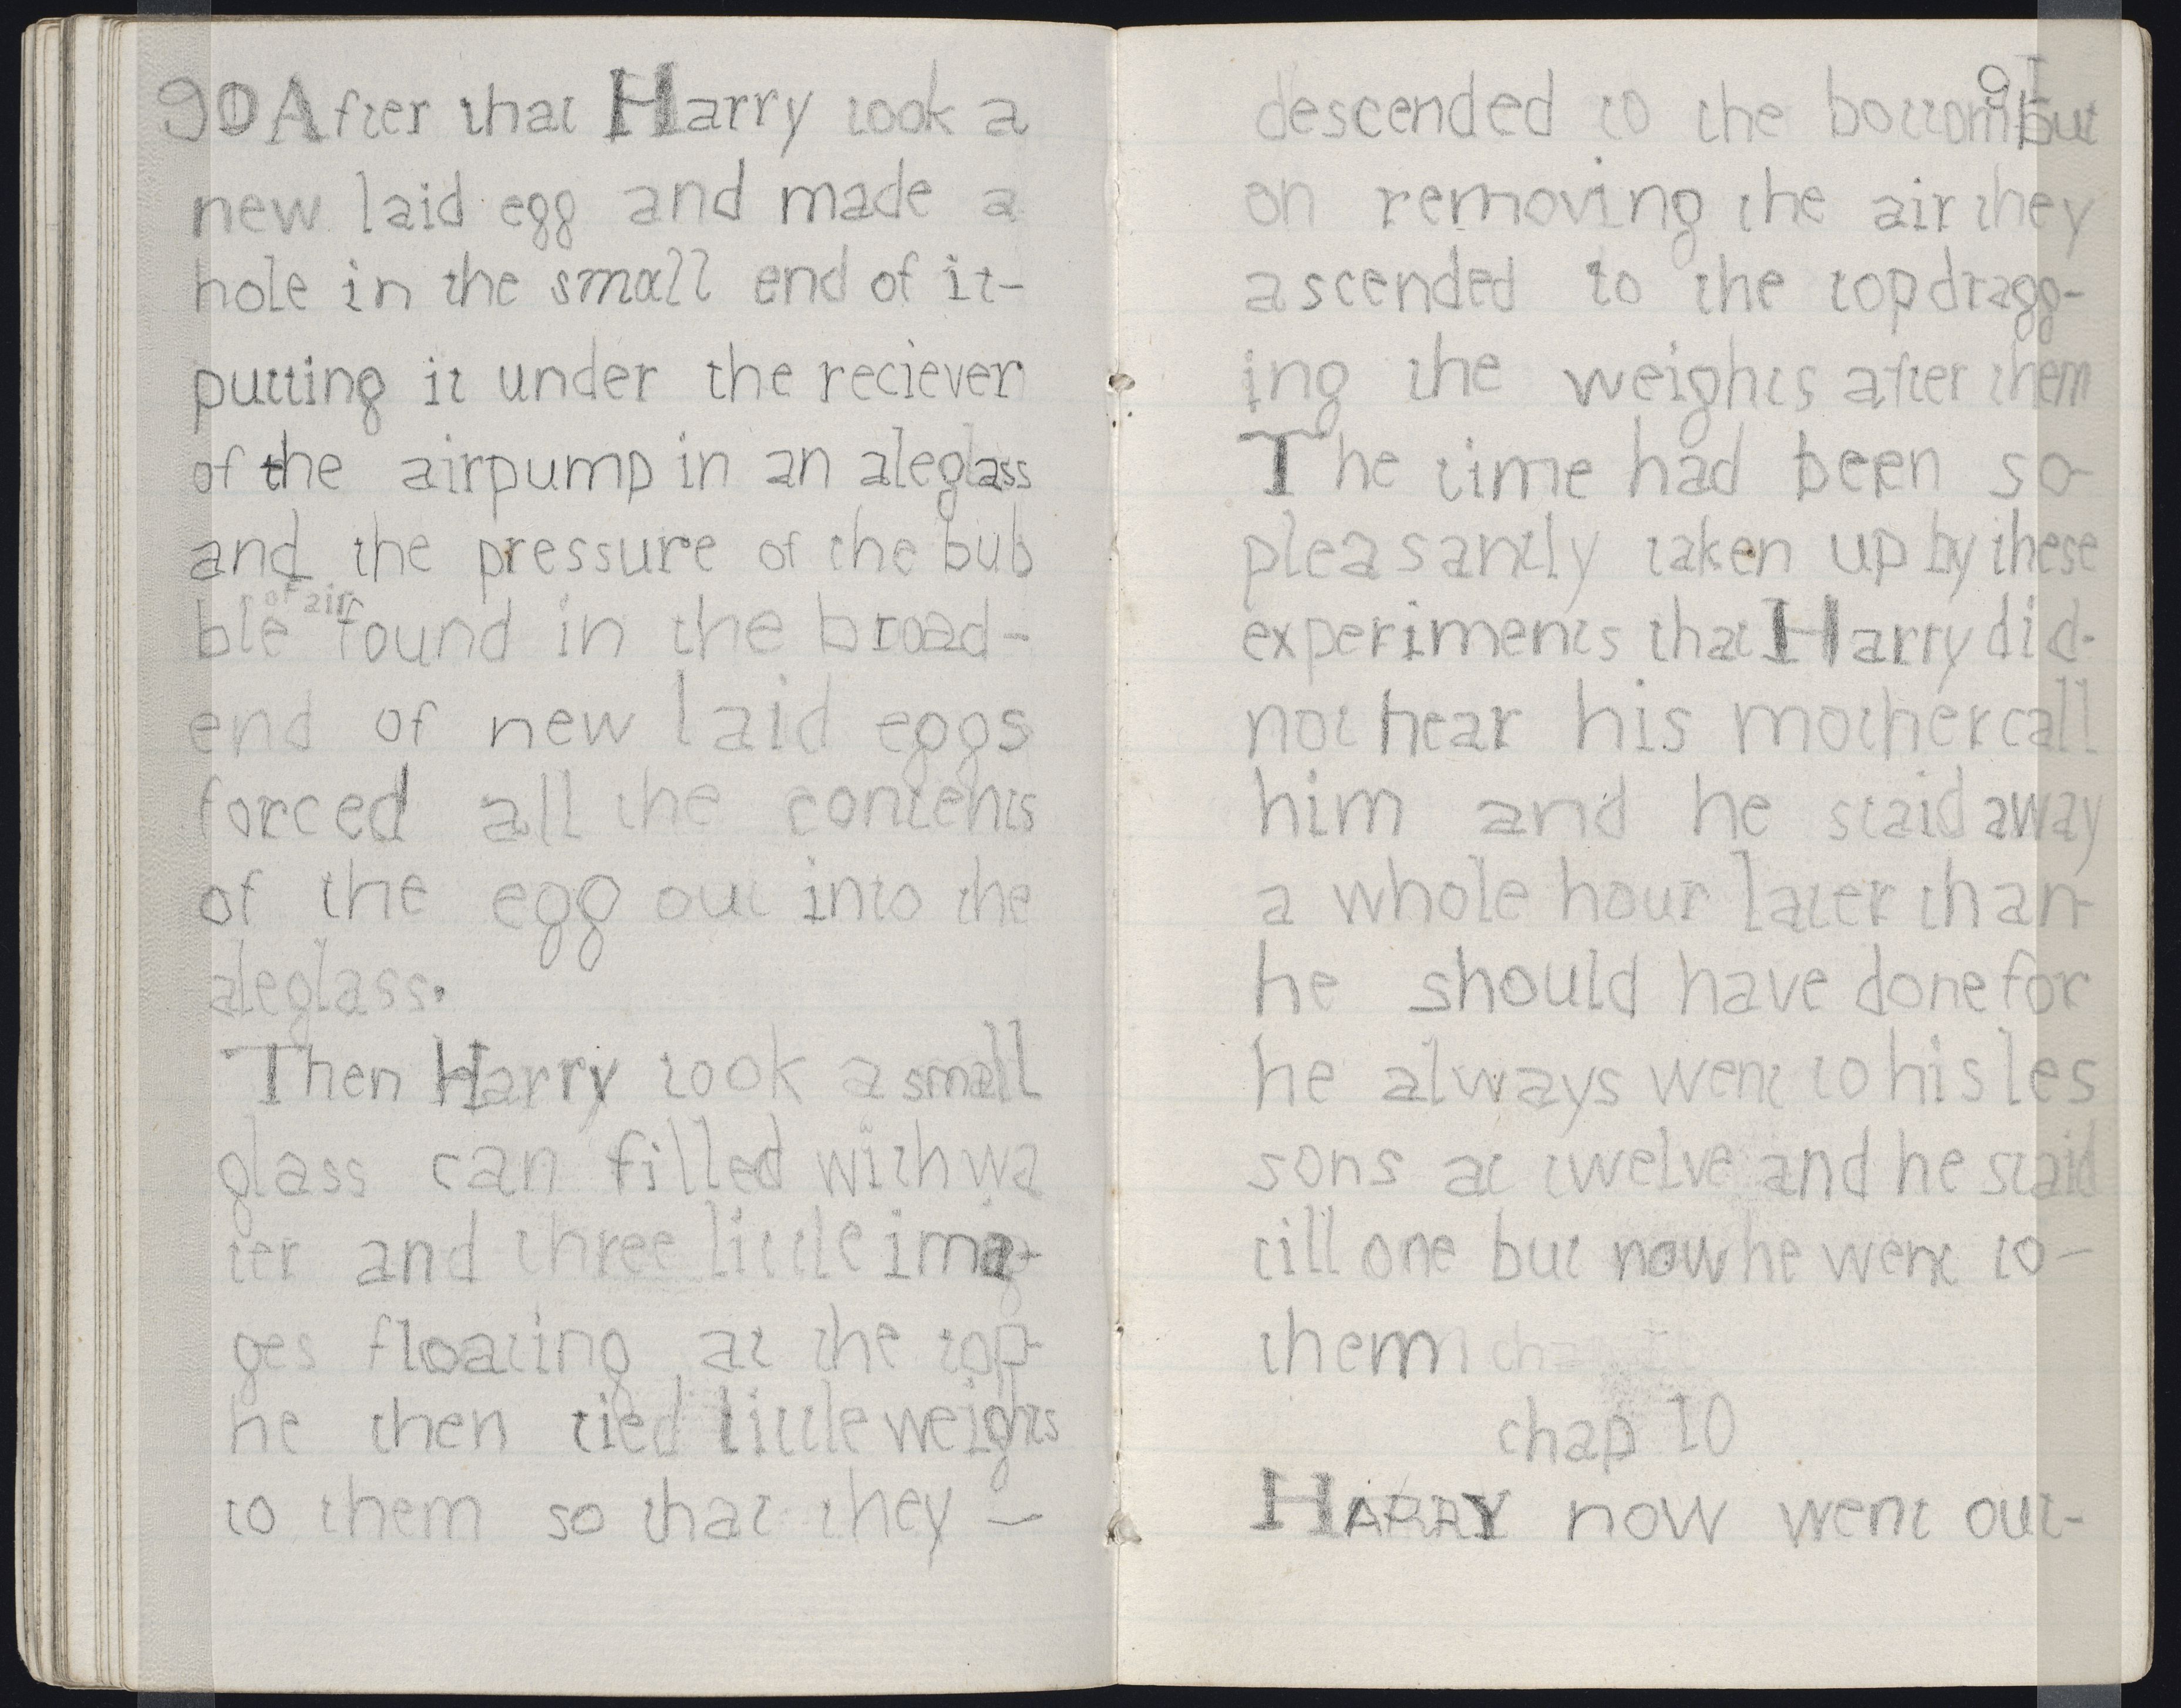 90 After that Harry took a
new laid egg and made a
hole in the small end of it-
putting it under the reciever
of the airpump in an aleglass
and the pressure of the bub
of air
ble found in the broad-
end of new laid eggs
forced all the contents
of the egg out into the
aleglass.
Then Harry took a small
glass can filled with wa
ter and three little ima-
ges floating at the top-
he then tied little weights
to them so that they -
91
descended to the bottom but
on removing the air they
ascended to the top dragg-
ing the weights after them
The time had been so-
pleasantly taken up by these
experiments that Harry did-
not hear his mother call
him and he staid away
a whole hour later than-
he should have done for
he always went to his les
sons at twelve and he staid
till one but now he went to-
them
chap 10
HARRY now went out-